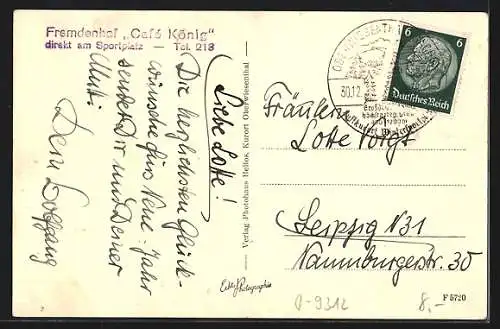 Fremdenhof „Café König"
direkt am Sportplatz — Tel. 213
Liebe Lotte!
Die herzlichsten Glück-
wünsche fürs Neue-Jahr
sendet Dir und Deiner
Mutti
Dein Wolfgang
Verlag Photohaus Helios, Kurort Oberwiesenthal
Echte Photographie
30.12.
6 6
Deutsches Reich
Fräulein
Lotte Voigt
Leipzig N31
Naumburgerstr. 30
F 5720
0-9312
8,-